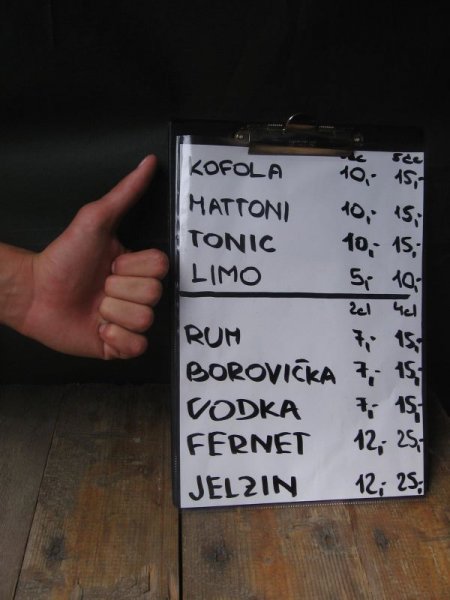 KOFOLA 10,- 15,-
MATTONI 10,- 15,-
TONIC 10,- 15,-
LIMO 5,- 10,-
2cl 4cl
RUM 7,- 15,-
BOROVIČKA 7,- 15,-
VODKA 7,- 15,-
FERNET 12,- 25,-
JELZIN 12,- 25,-